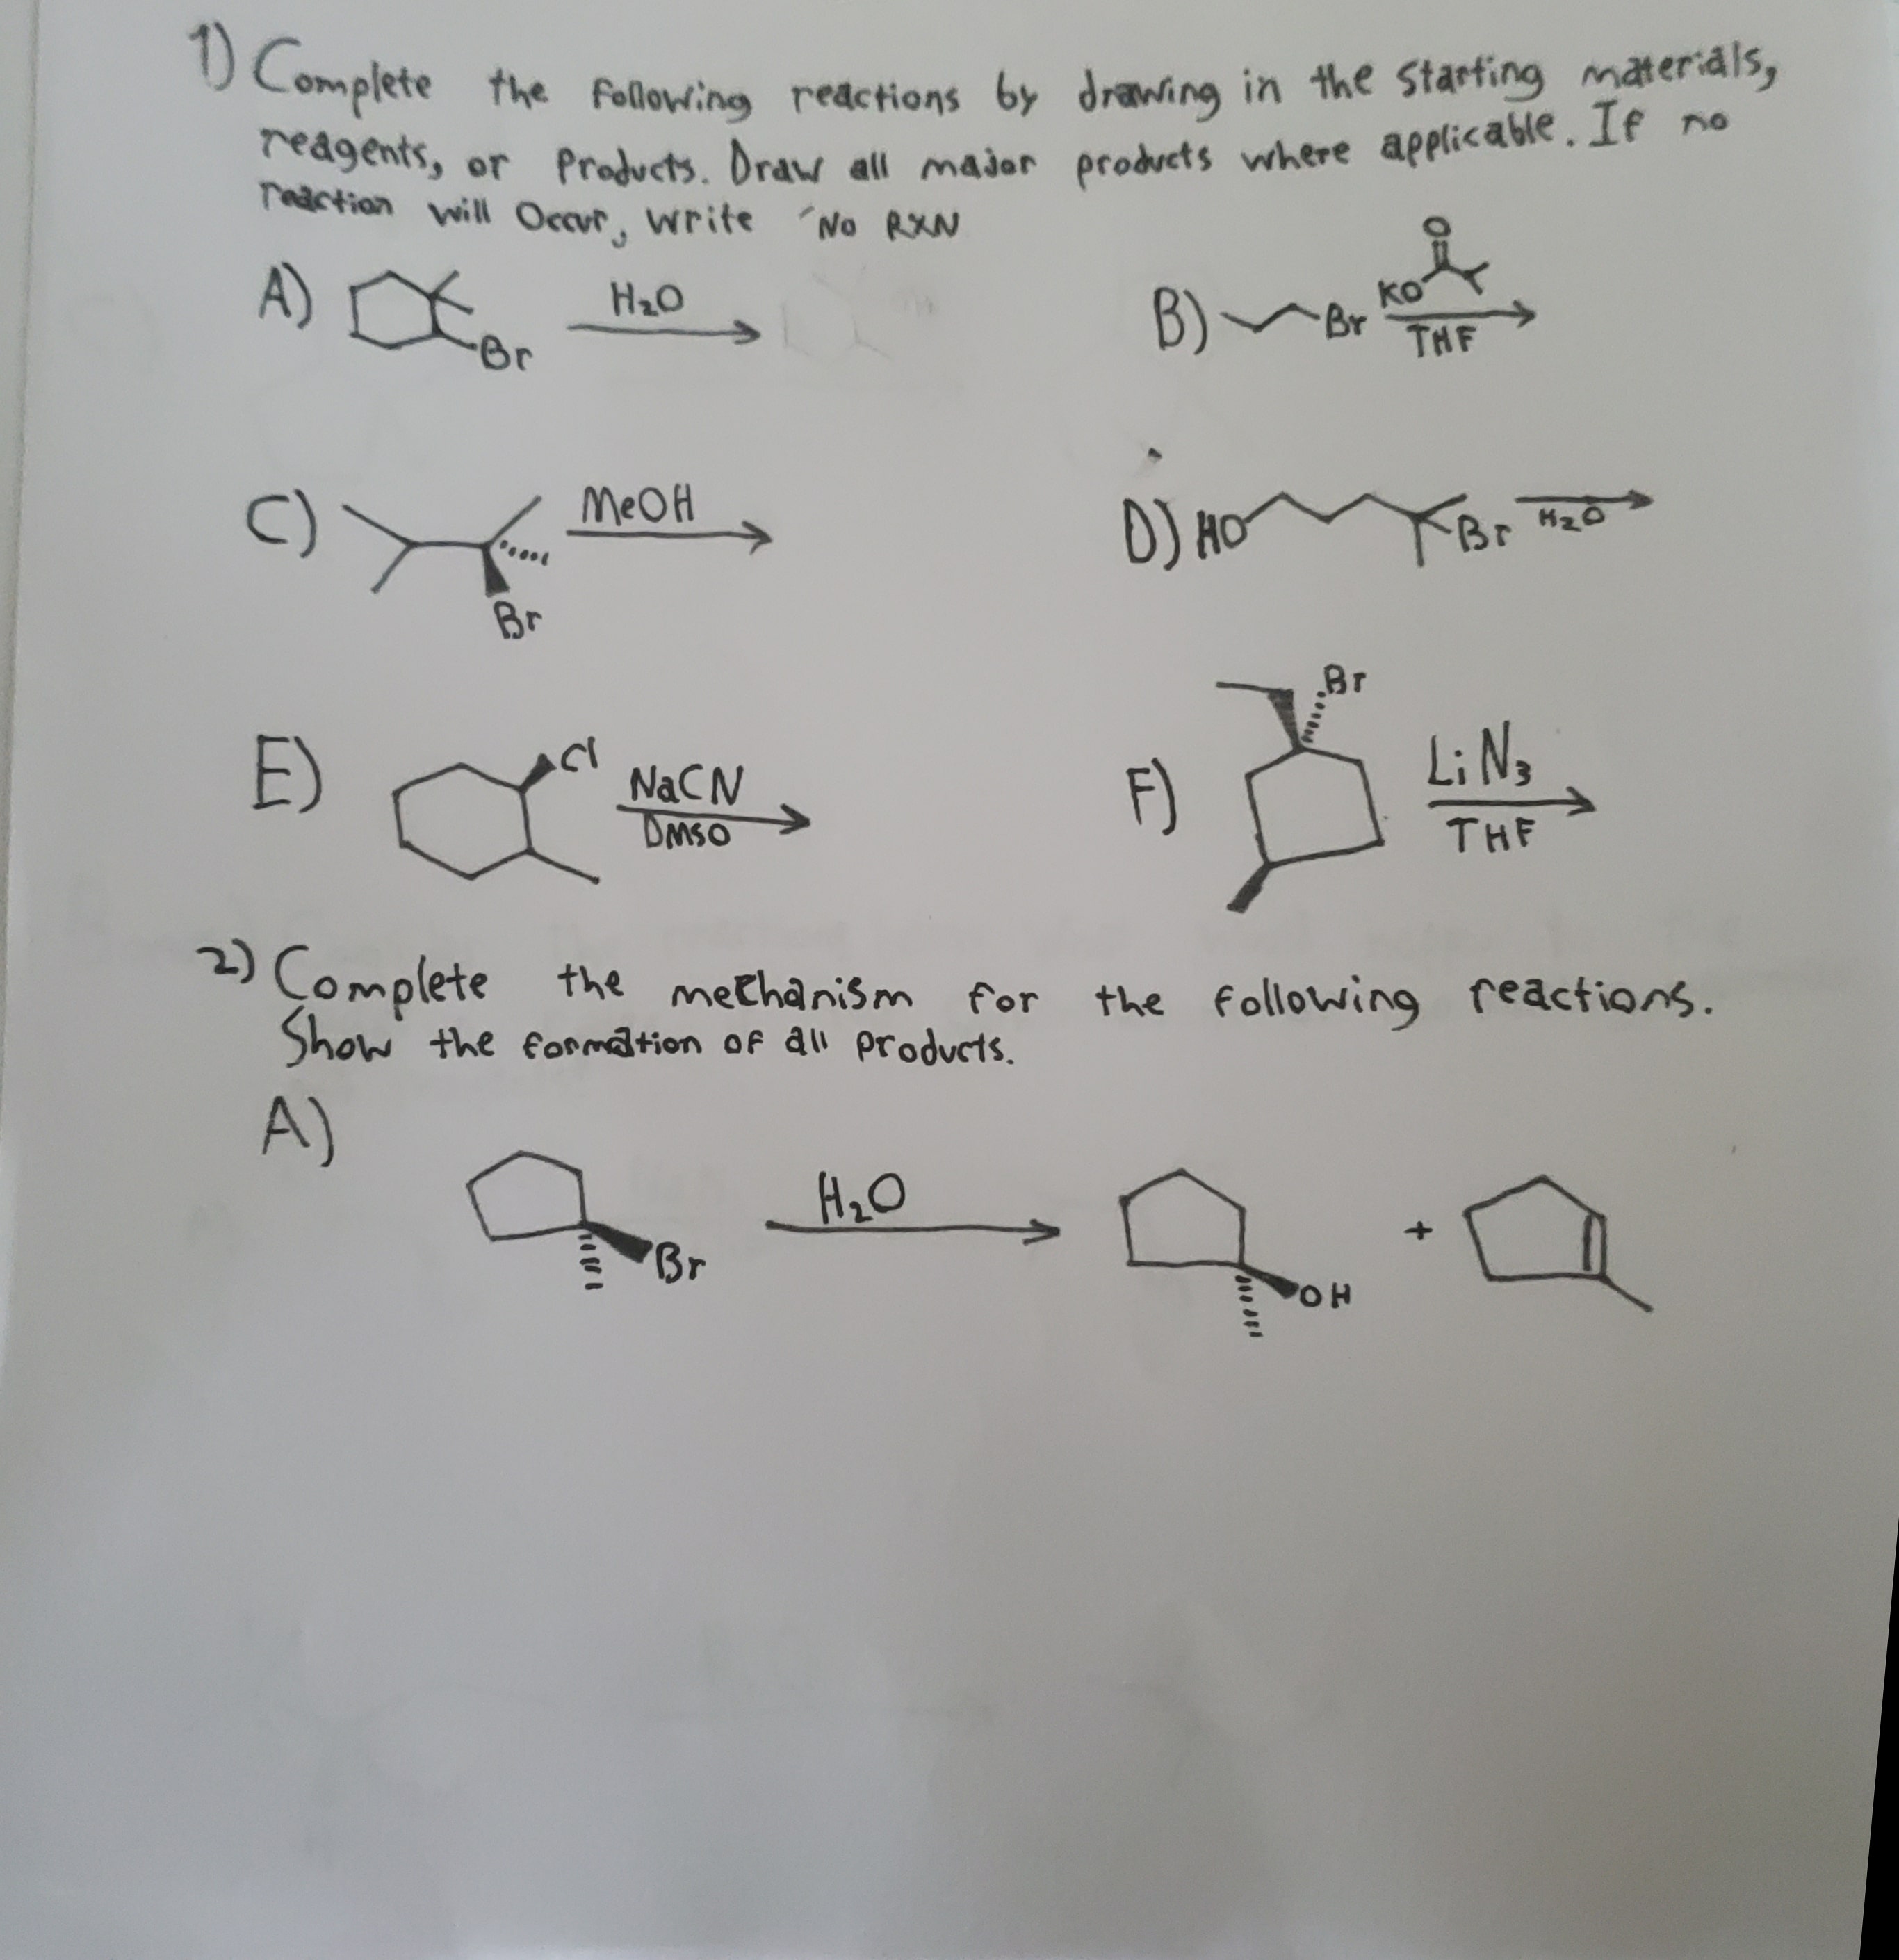 1) Complete the following reactions by drawing in the starting materials,
reagents, or Products. Draw all major products where applicable. If no
reaction will Occur, write "No RXN
A) Br H₂O
B) Br KO O THF
C) Br MeOH
D) HO Br H₂O
E) Cl NaCN DMSO
F) Br LiN₃ THF
2) Complete the mechanism for the following reactions.
Show the formation of all products.
A)
Br H₂O OH +